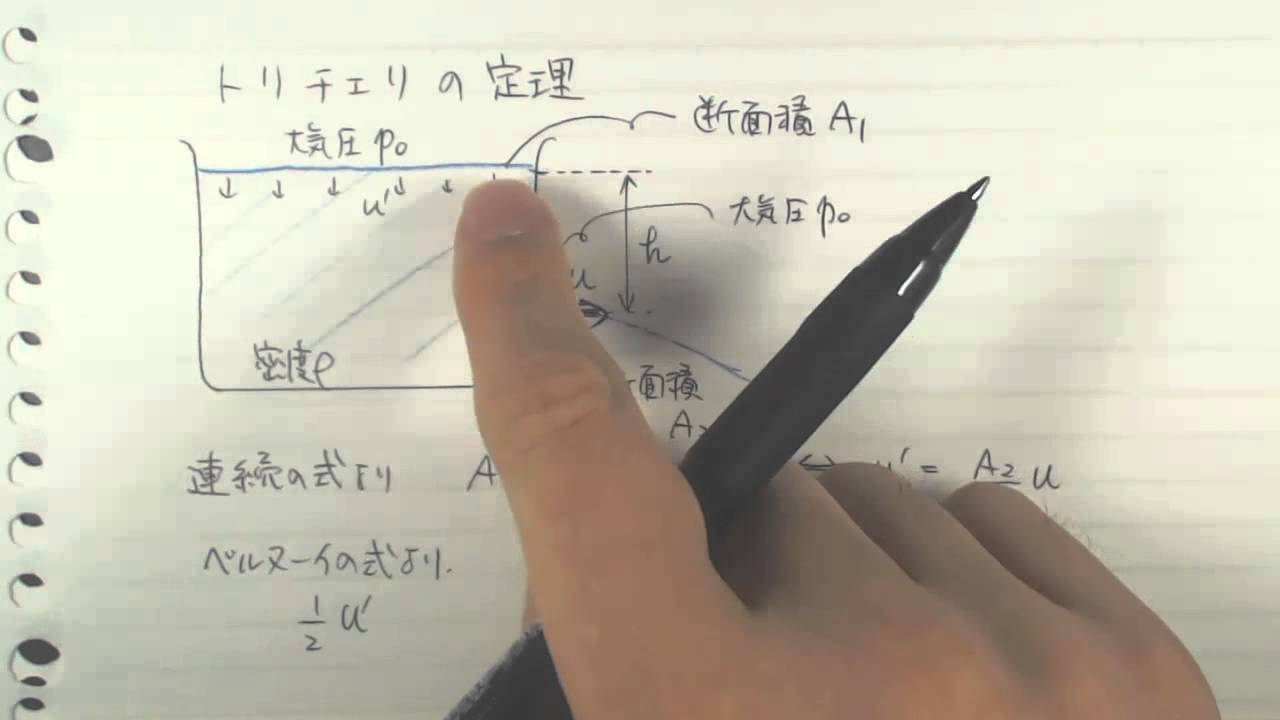 トリチェリの定理
大気圧 p₀
断面積 A₁
u'
大気圧 p₀
h
u
密度ρ
面積
A₂
連続の式より A ⇔ u' = A₂ u
ベルヌーイの式より.
1/2 u'